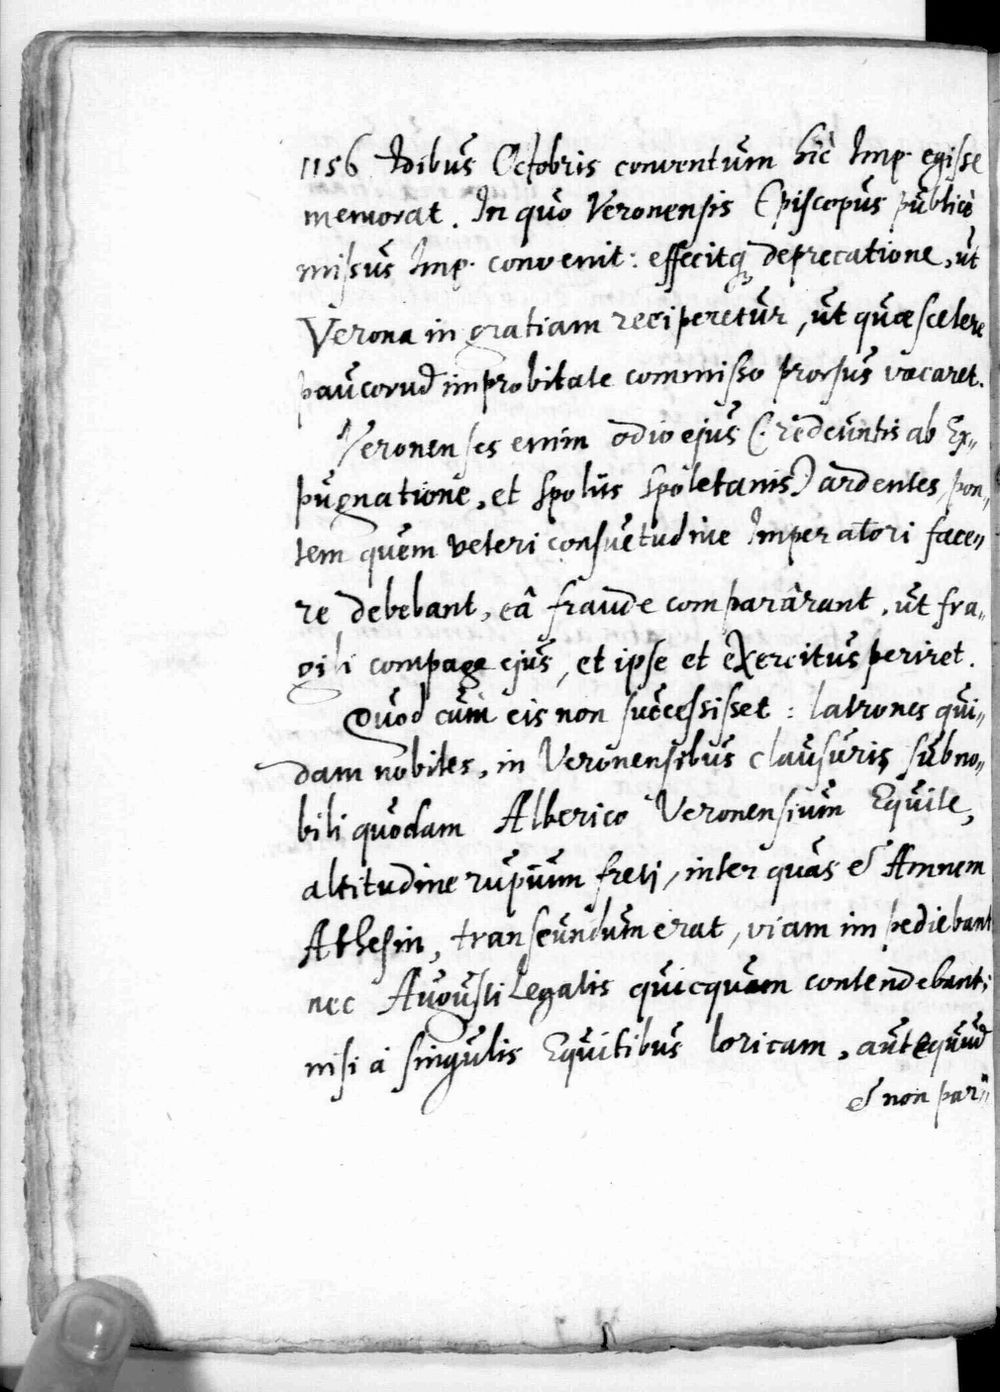 1156 Idibus Octobris conventum hîc Imp. egisse
memorat. In quo Veronensis Episcopus publicè
missus Imp. convenit: effecitq; deprecatione, ut
Verona in gratiam reciperetur, ut quæ scelere
paucorum improbitate commisso prorsus vacaret.
Veronenses enim odio ejus (redeuntis ab Ex„
pugnatione, et spoliis Spoletanis) ardentes, pon„
tem quem veteri consuetudine Imperatori face„
re debebant, eâ fraude compararant, ut fra„
gili compage ejus, et ipse et exercitus periret.
Quod cum eis non successisset: latrones qui„
dam nobiles, in Veronensibus clausuris, sub no„
bili quodam Alberico Veronensium Equite,
altitudine rupium freti, inter quas & Amnem
Athesin, transeundum erat, viam impediebant
nec Augusti Legatis quicquam contendebant;
nisi à singulis Equitibus loricam, aut equum
& non par„